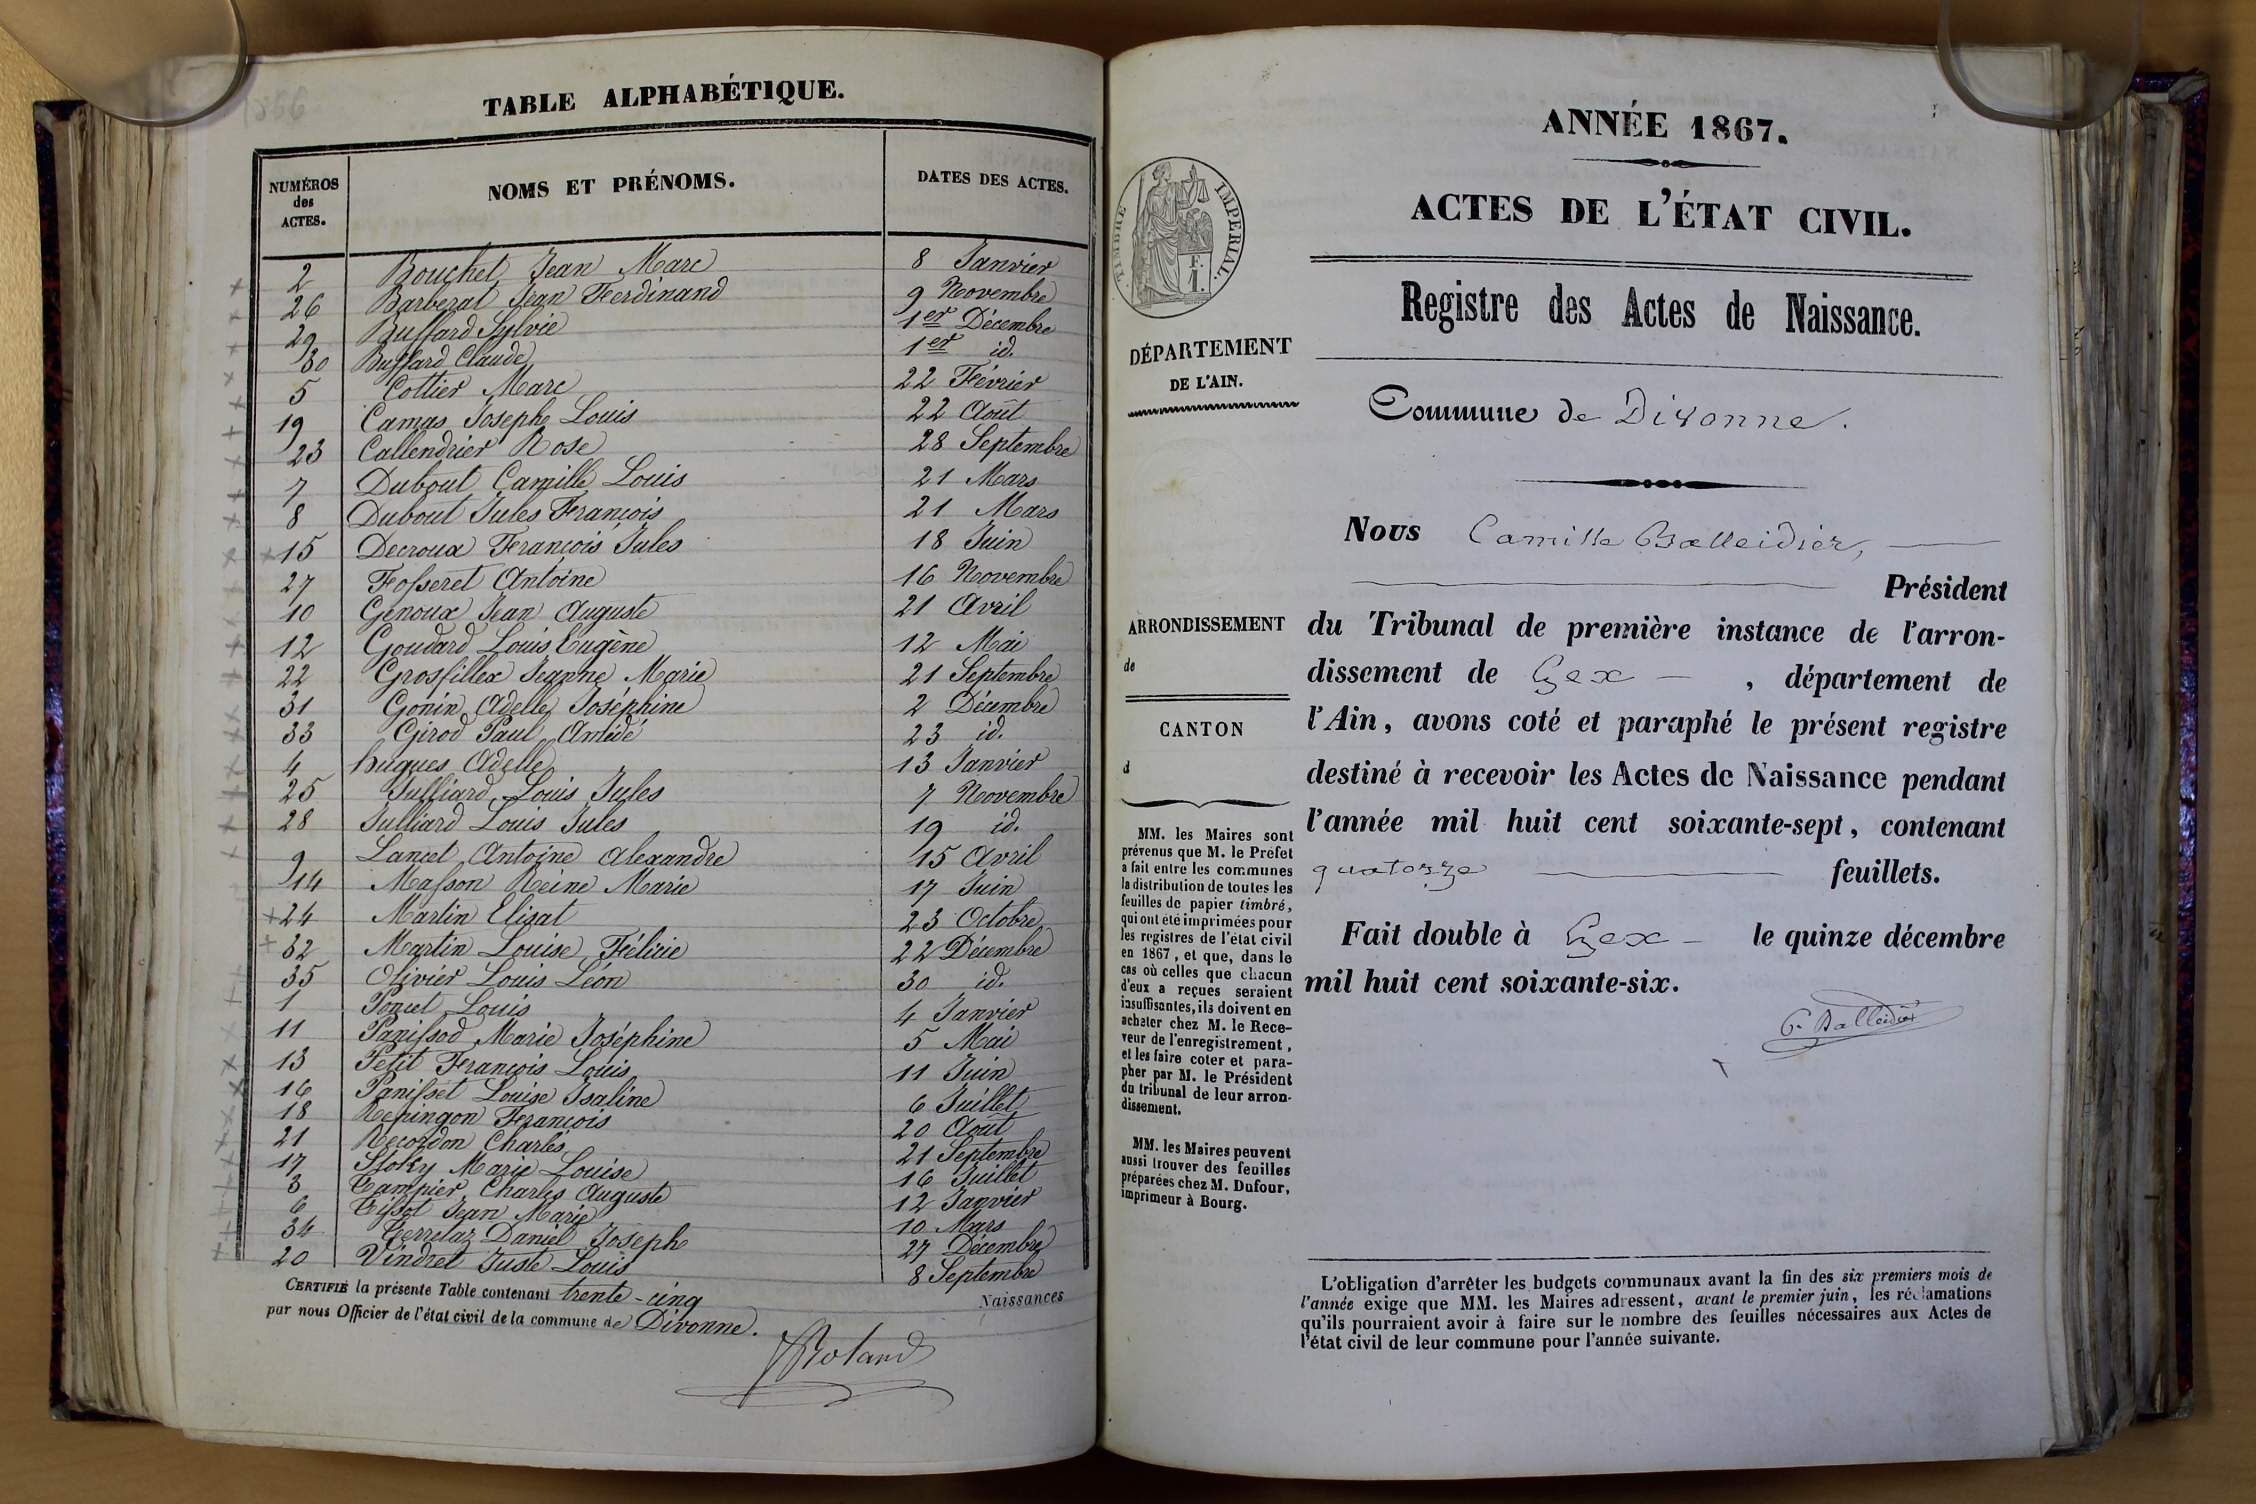 TABLE ALPHABÉTIQUE.
NUMÉROS des ACTES. NOMS ET PRÉNOMS. DATES DES ACTES.
2 Bouchet Jean Marc 8 Janvier
26 Barberat Jean Ferdinand 9 Novembre
29 Buffard Sylvie 1er Décembre
30 Buffard Claude 1er id.
5 Cottier Marc 22 Février
19 Camas Joseph Louis 22 Août
23 Callendrier Rose 28 Septembre
7 Dubout Camille Louis 21 Mars
8 Dubout Jules François 21 Mars
15 Decroux François Jules 18 Juin
27 Fosseret Antoine 16 Novembre
10 Genoux Jean Auguste 21 Avril
12 Goudard Louis Eugène 12 Mai
22 Grosfillex Jeanne Marie 21 Septembre
31 Gonin Adelle Joséphine 2 Décembre
33 Girod Paul Amédé 23 id.
4 hugues Adelle 13 Janvier
25 Julliard Louis Jules 7 Novembre
28 Julliard Louis Jules 19 id.
9 Lancet Antoine Alexandre 15 Avril
14 Masson Reine Marie 17 Juin
24 Martin Elisat 23 Octobre
32 Martin Louise Félicie 22 Décembre
35 Olivier Louis Léon 30 id.
1 Poncet Louis 4 Janvier
11 Panissod Marie Joséphine 5 Mai
13 Petit François Louis 11 Juin
16 Panisset Louise Isaline 6 Juillet
18 Repingon François 20 Août
21 Recordon Charles 21 Septembre
17 Stoky Marie Louise 16 Juillet
3 Tampier Charles Auguste 12 Janvier
6 Tissot Jean Marie 10 Mars
34 Terretaz Daniel Joseph 27 Décembre
20 Vindret Juste Louis 8 Septembre
CERTIFIÉ la présente Table contenant trente-cinq Naissances
par nous Officier de l'état civil de la commune de Divonne.
Roland
ANNÉE 1867.
ACTES DE L'ÉTAT CIVIL.
TIMBRE IMPÉRIAL.
F.
1.
Registre des Actes de Naissance.
DÉPARTEMENT
DE L'AIN.
Commune de Divonne.
Nous Camille Balleidier,
Président
du Tribunal de première instance de l'arron-
dissement de Gex, département de
l'Ain, avons coté et paraphé le présent registre
destiné à recevoir les Actes de Naissance pendant
l'année mil huit cent soixante-sept, contenant
quatorze feuillets.
Fait double à Gex le quinze décembre
mil huit cent soixante-six.
C. Balleidier
ARRONDISSEMENT
de
CANTON
d
MM. les Maires sont
prévenus que M. le Préfet
a fait entre les communes
la distribution de toutes les
feuilles de papier timbré,
qui ont été imprimées pour
les registres de l'état civil
en 1867, et que, dans le
cas où celles que chacun
d'eux a reçues seraient
insuffisantes, ils doivent en
acheter chez M. le Rece-
veur de l'enregistrement,
et les faire coter et para-
pher par M. le Président
du tribunal de leur arron-
dissement.
MM. les Maires peuvent
aussi trouver des feuilles
préparées chez M. Dufour,
imprimeur à Bourg.
L'obligation d'arrêter les budgets communaux avant la fin des six premiers mois de
l'année exige que MM. les Maires adressent, avant le premier juin, les réclamations
qu'ils pourraient avoir à faire sur le nombre des feuilles nécessaires aux Actes de
l'état civil de leur commune pour l'année suivante.